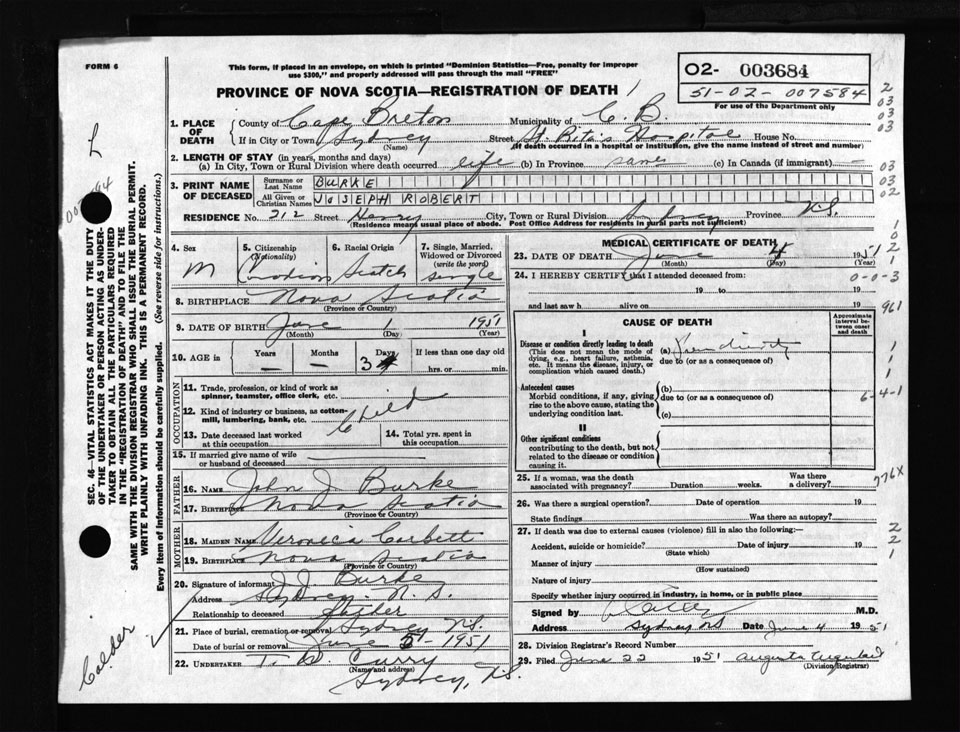 FORM 6
This form, if placed in an envelope, on which is printed "Dominion Statistics—Free, penalty for improper
use $300," and properly addressed will pass through the mail "FREE"
PROVINCE OF NOVA SCOTIA—REGISTRATION OF DEATH
O2- 003684
51-02-007584
For use of the Department only
1. PLACE OF DEATH
County of Cape Breton Municipality of C. B.
If in City or Town Sydney Street St. Rita's Hospital House No.
(Name) (If death occurred in a hospital or institution, give the name instead of street and number)
2. LENGTH OF STAY (in years, months and days)
(a) In City, Town or Rural Division where death occurred life (b) In Province same (c) In Canada (if immigrant) —
3. PRINT NAME OF DECEASED
Surname or Last Name BURKE
All Given or Christian Names JOSEPH ROBERT
RESIDENCE No. 212 Street Henry City, Town or Rural Division Sydney Province N.S.
(Residence means usual place of abode. Post Office Address for rural parts not sufficient)
4. Sex M
5. Citizenship (Nationality) Canadian
6. Racial Origin Scotch
7. Single, Married, Widowed or Divorced (write the word) single
8. BIRTHPLACE Nova Scotia
(Province or Country)
9. DATE OF BIRTH June 1 1951
(Month) (Day) (Year)
10. AGE in Years — Months — Days 3 If less than one day old
hrs. or min.
OCCUPATION
11. Trade, profession, or kind of work as spinner, teamster, office clerk, etc.
12. Kind of industry or business, as cotton-mill, lumbering, bank, etc.
Child
13. Date deceased last worked at this occupation
14. Total yrs. spent in this occupation
15. If married give name of wife or husband of deceased
FATHER
16. NAME John J Burke
17. BIRTHPLACE Nova Scotia
(Province or Country)
MOTHER
18. MAIDEN NAME Veroneca Corbett
19. BIRTHPLACE Nova Scotia
(Province or Country)
20. Signature of informant J. J. Burke
Address Sydney. N. S.
Relationship to deceased father
21. Place of burial, cremation or removal Sydney N.S.
Date of burial or removal June 5 1951
22. UNDERTAKER T. W. Curry
(Name and address)
Sydney, N.S.
MEDICAL CERTIFICATE OF DEATH
23. DATE OF DEATH June 4 1951
(Month) (Day) (Year)
24. I HEREBY CERTIFY that I attended deceased from:
19 to 19
and last saw h alive on 19
CAUSE OF DEATH
Approximate interval between onset and death
I
Disease or condition directly leading to death (a)
(This does not mean the mode of dying, e.g., heart failure, asthenia, etc. It means the disease, injury, or complication which caused death.)
due to (or as a consequence of)
Antecedent causes (b)
Morbid conditions, if any, giving rise to the above cause, stating the underlying condition last.
due to (or as a consequence of)
(c)
II
Other significant conditions
contributing to the death, but not related to the disease or condition causing it.
25. If a woman, was the death associated with pregnancy? Duration weeks. Was there a delivery?
26. Was there a surgical operation? Date of operation 19
State findings Was there an autopsy?
27. If death was due to external causes (violence) fill in also the following:—
Accident, suicide or homicide? Date of injury 19
(State which)
Manner of injury
(How sustained)
Nature of injury
Specify whether injury occurred in industry, in home, or in public place
Signed by M.D.
Address Sydney NS Date June 4 1951
28. Division Registrar's Record Number
29. Filed June 22 1951 Augusta
(Division Registrar)
SEC. 46—VITAL STATISTICS ACT MAKES IT THE DUTY
OF THE UNDERTAKER OR PERSON ACTING AS UNDER-
TAKER TO OBTAIN ALL THE PARTICULARS REQUIRED
IN THE "REGISTRATION OF DEATH" AND TO FILE THE
SAME WITH THE DIVISION REGISTRAR WHO SHALL ISSUE THE BURIAL PERMIT.
WRITE PLAINLY WITH UNFADING INK. THIS IS A PERMANENT RECORD.
Every item of Information should be carefully supplied. (See reverse side for instructions.)
L
Calder
2
03
03
03
03
03
02
0-0-3
961
6-4-1
776X
2
2
1